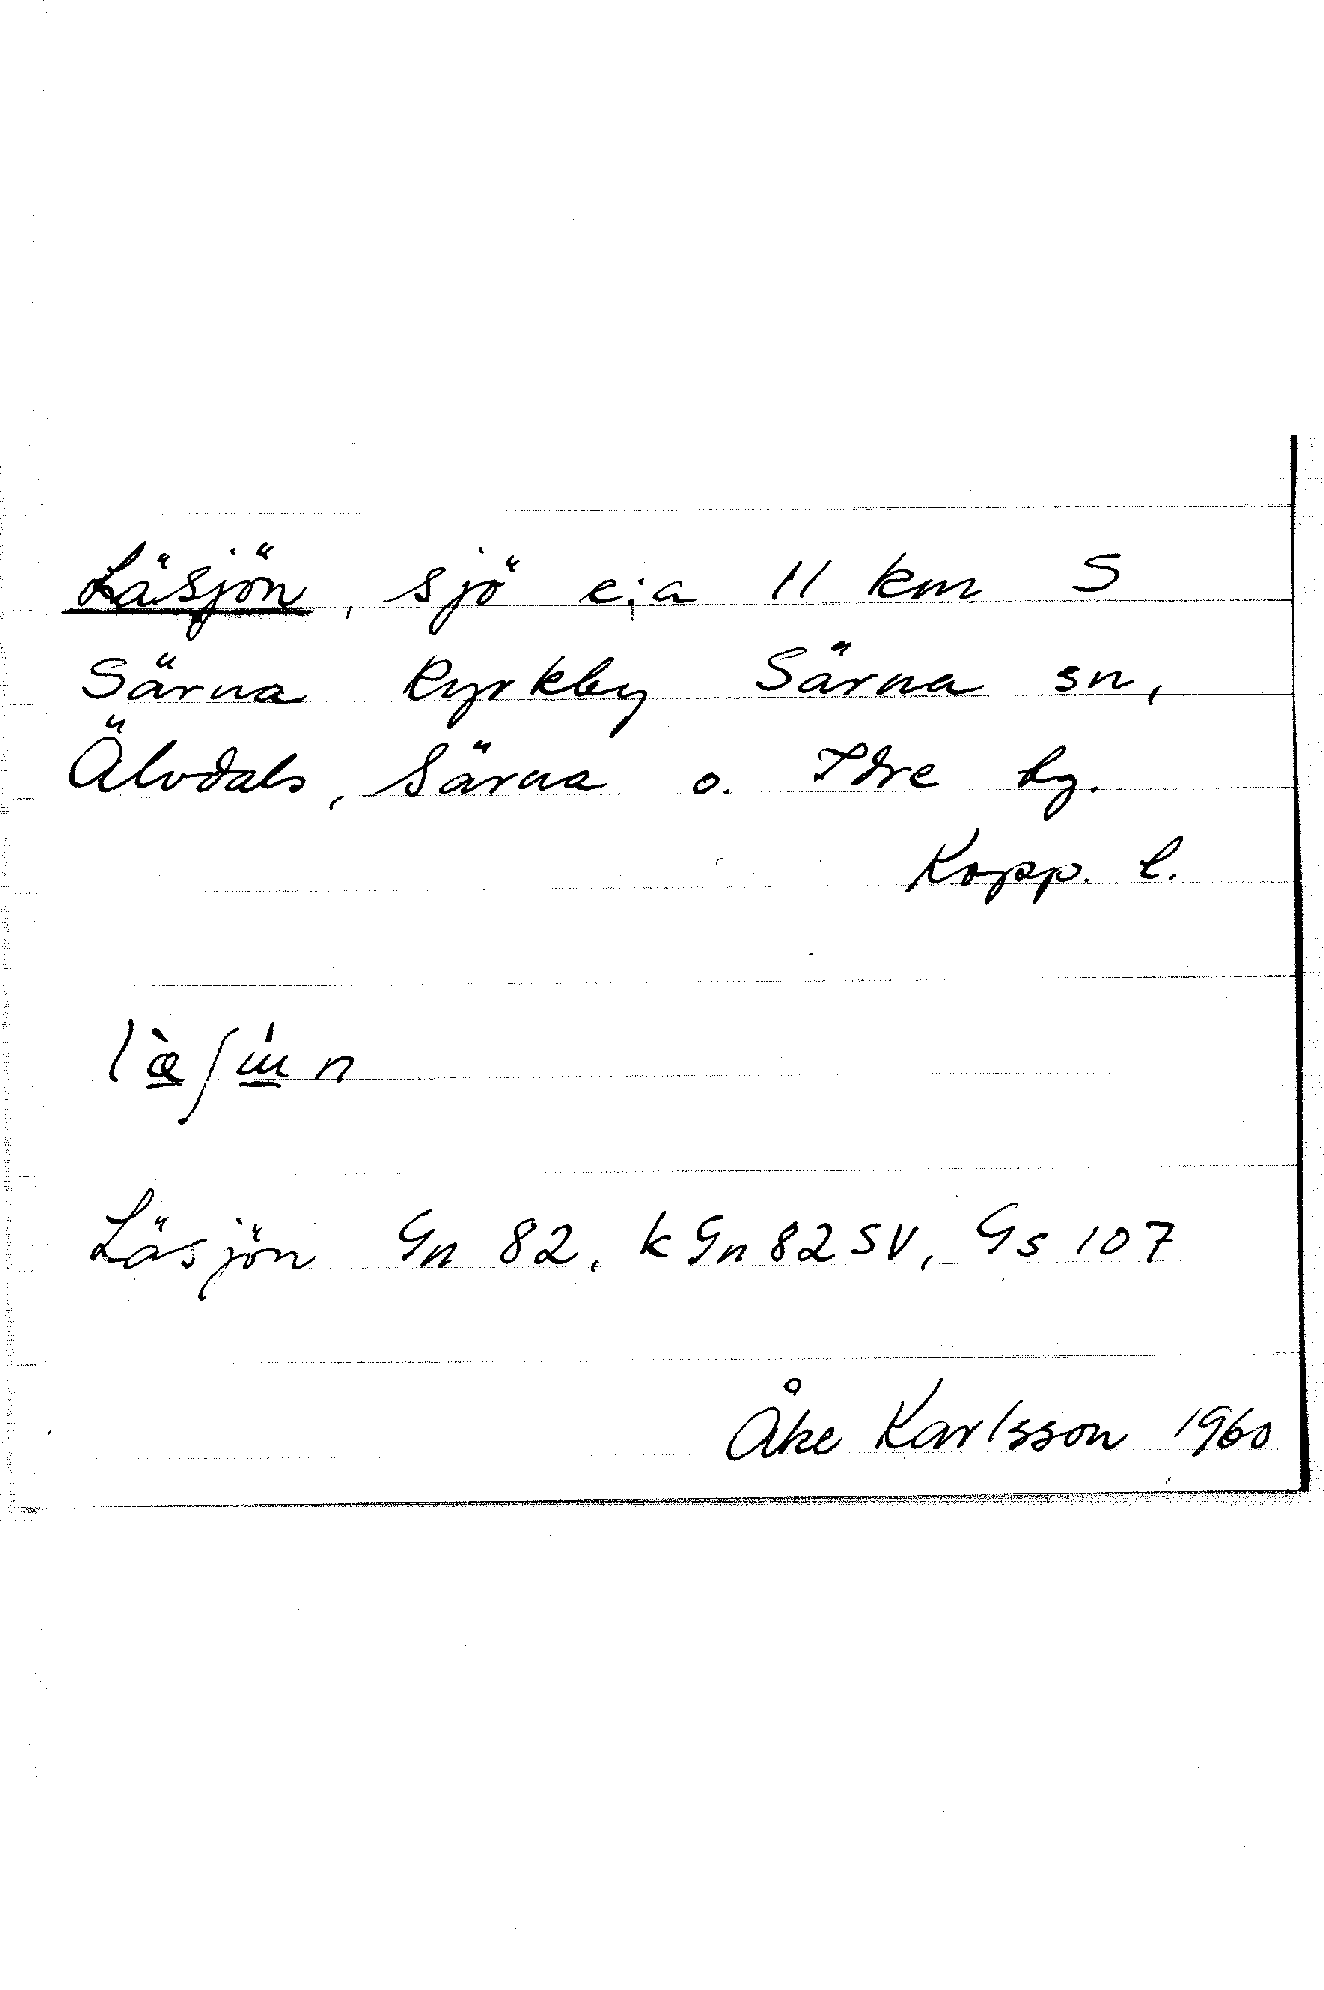 Läsjön, sjö c:a 11 km S
Särna kyrkby Särna sn,
Älvdals, Särna o. Idre hg.
Kopp. l.
Läsjön Gn 82, kGn82SV, Gs 107
Åke Karlsson 1960